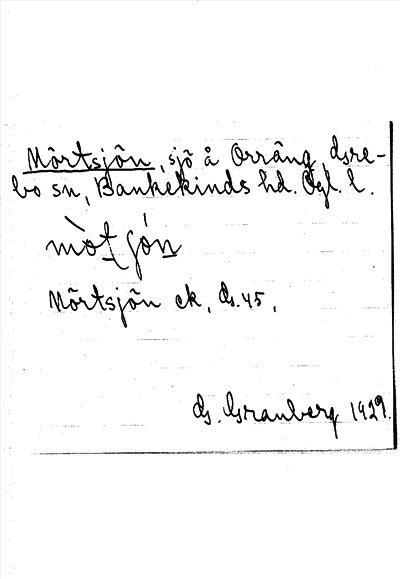 Mörtsjön, sjö å Orräng, Gre-
bo sn, Bankekinds hd. Ögl. l.
mòt̠ ʃón̠
Mörtsjön ek, G. 45,
G. Granberg 1929.